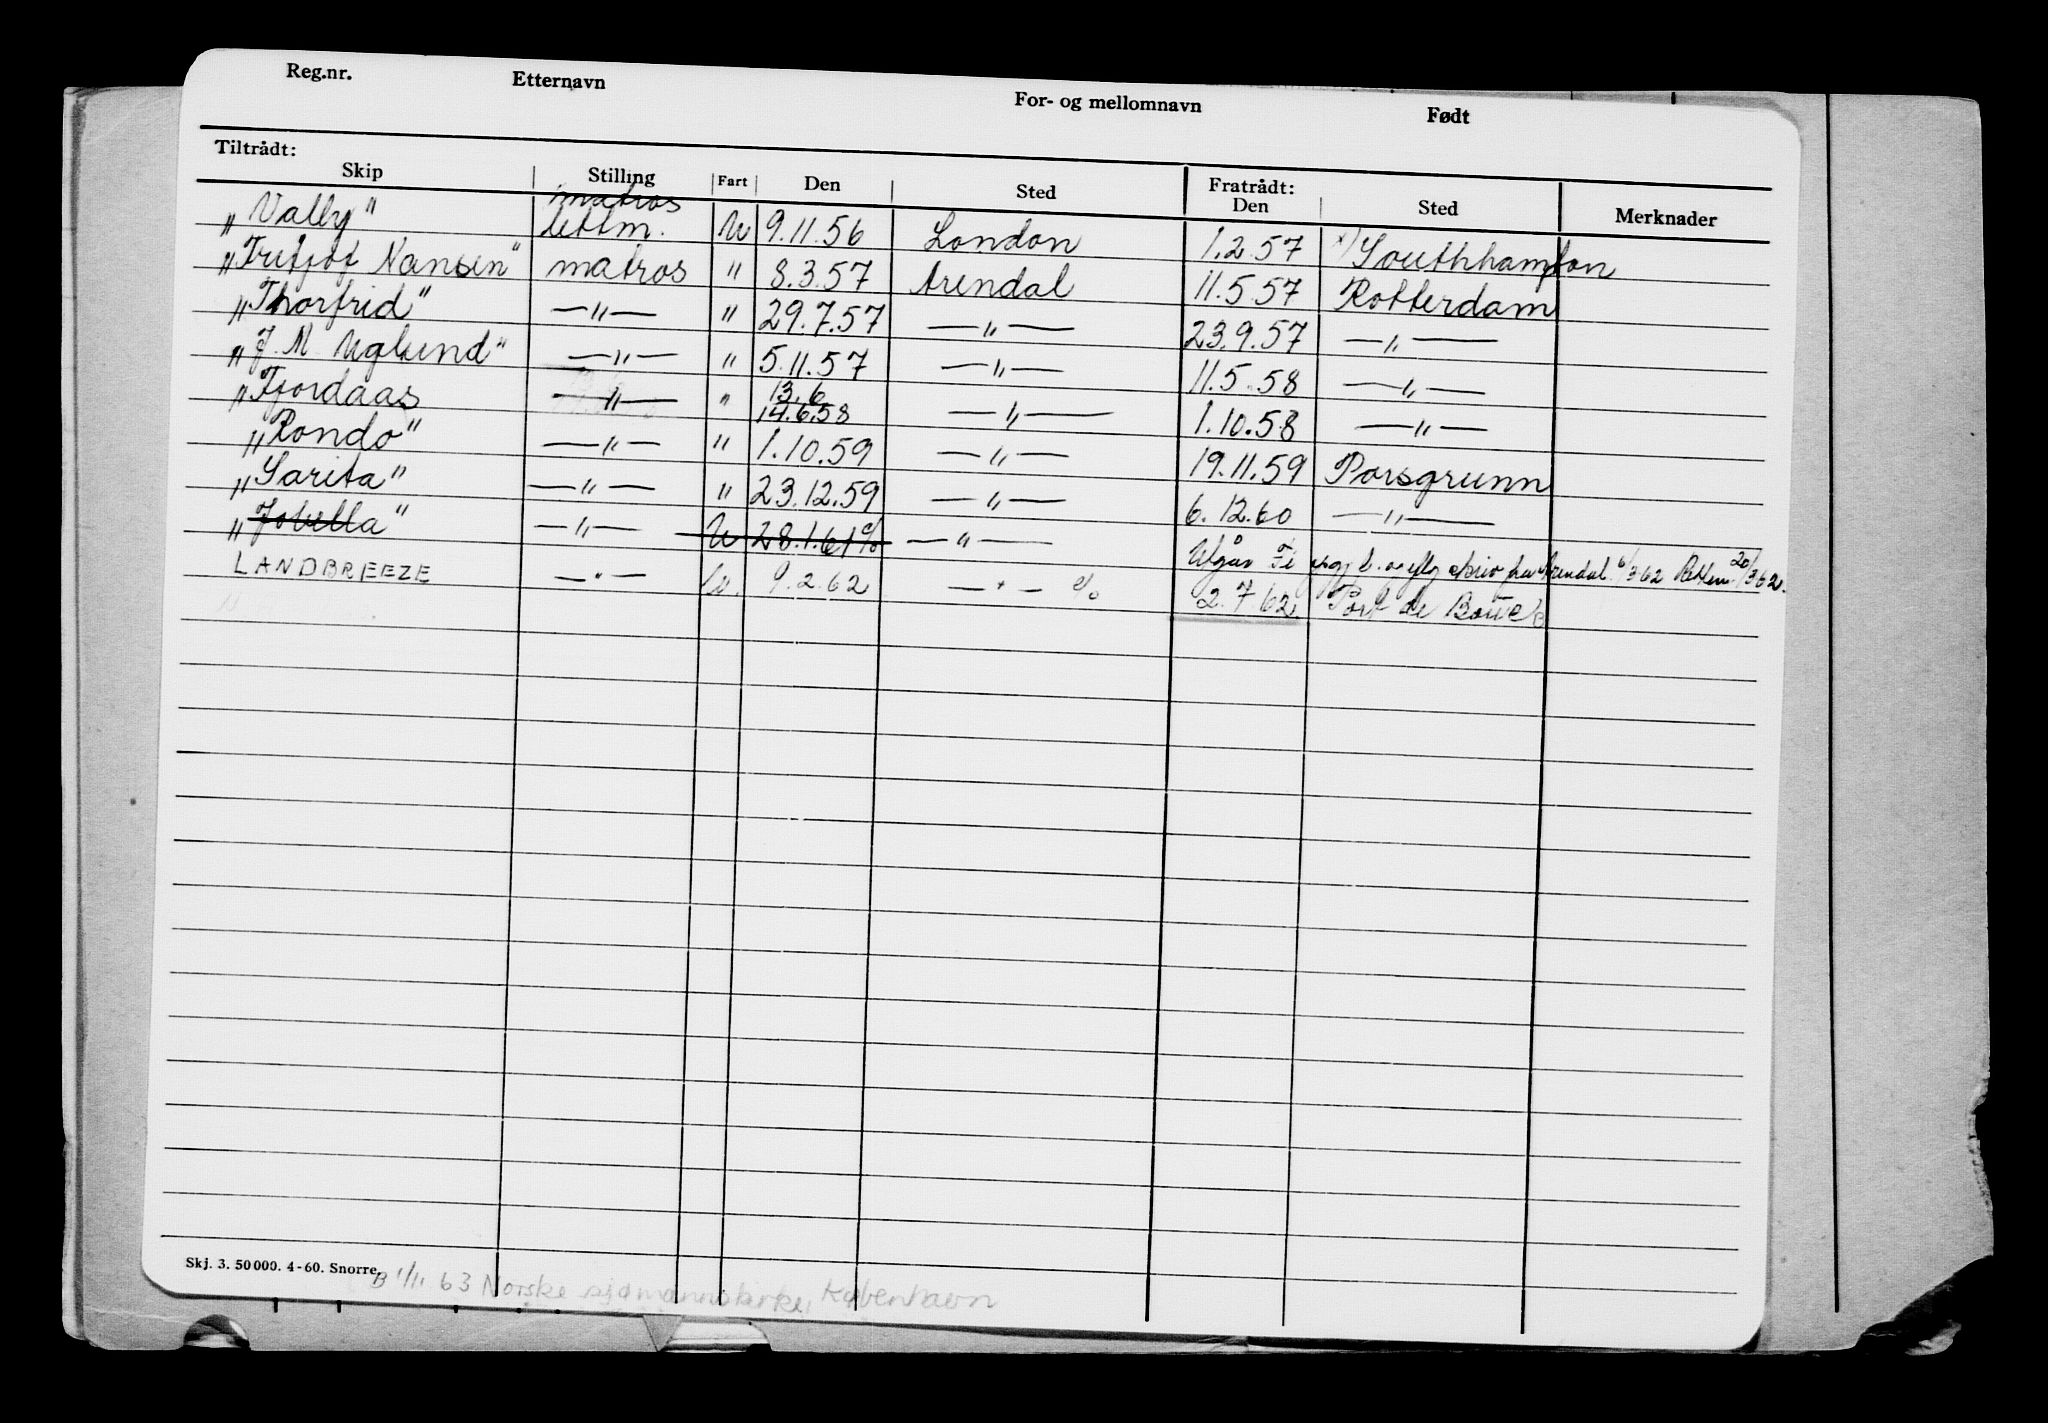 Reg.nr. Etternavn For- og mellomnavn Født
Tiltrådt: Fratrådt:
Skip Stilling Fart Den Sted Den Sted Merknader
matros
„Vally" lettm. U 9.11.56 London 1.2.57 x) Southhampton
„Fritjof Nansen" matros " 8.3.57 Arendal 11.5.57 Rotterdam
„Thorfrid" —„— " 29.7.57 —„— 23.9.57 —„—
„J. M. Uglund" —„— " 5.11.57 —„— 11.5.58 —„—
13.6
„Fjordaas —„— " 14.6.58 —„— 1.10.58 —„—
„Rondo" —„— " 1.10.59 —„— 19.11.59 Porsgrunn
„Sarita" —„— " 23.12.59 —„— 6.12.60 —„—
„Jobella" —„— U 28.1.61 % —„— Utgår skriv fra Arendal 6/3 62 20/3 62.
LANDBREEZE —"— U. 9.2.62 —"— % 2.7.62. Port de Bouc
Skj. 3. 50 000. 4-60. Snorre.
B 1/11 63 Norske sjømannskirke, København